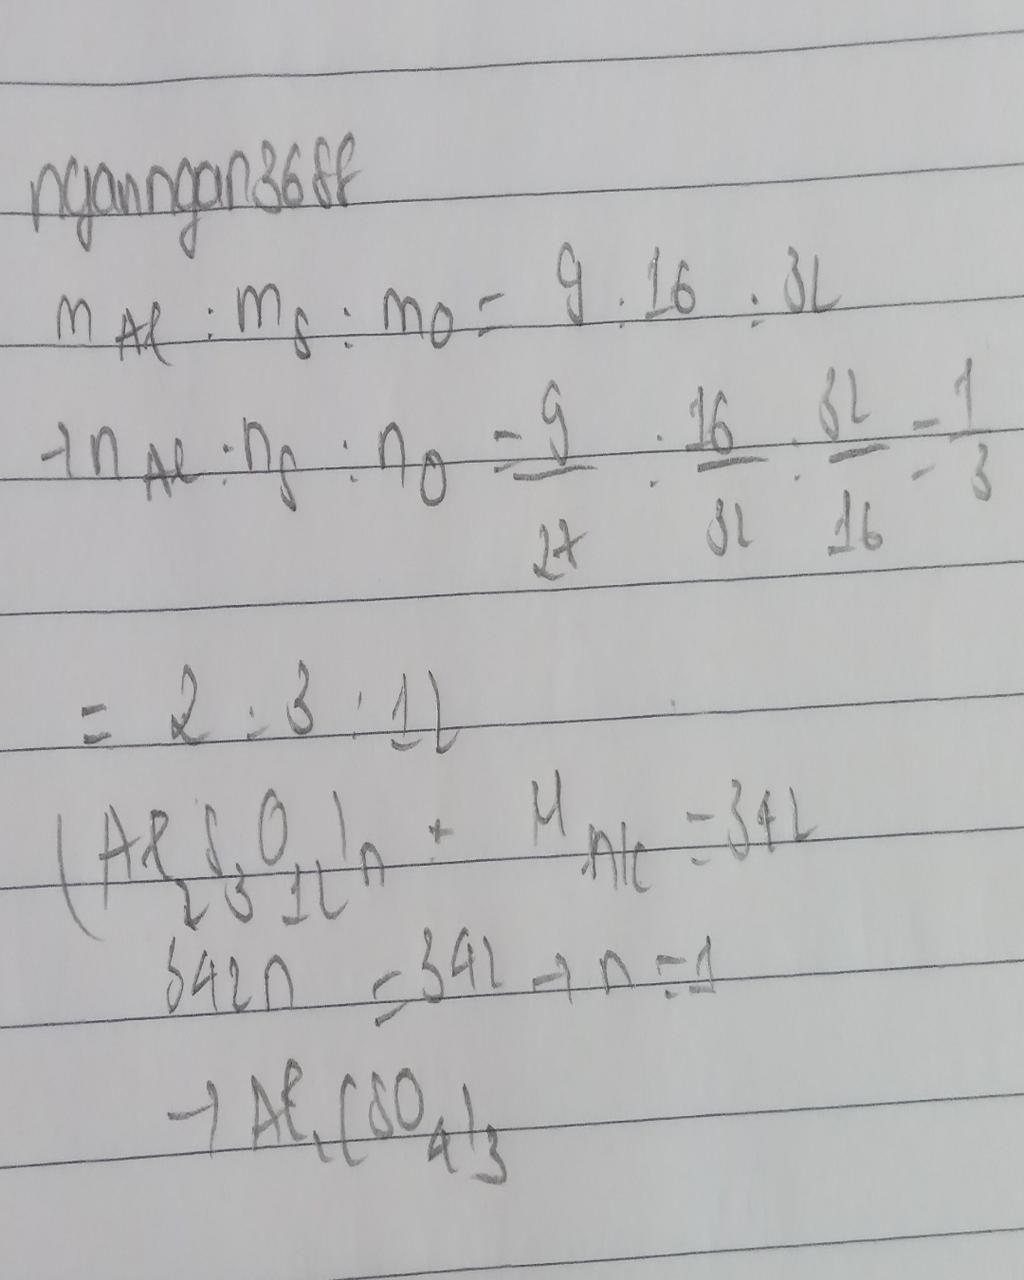 nganngan3688
m Al : m S : m O = 9 : 16 : 32
→ n Al : n S : n O = 9/27 : 16/32 : 32/16 = 1/3
= 2 : 3 : 12
(Al2S3O12)n + M A/c = 342
342n = 342 → n = 1
→ Al2(SO4)3